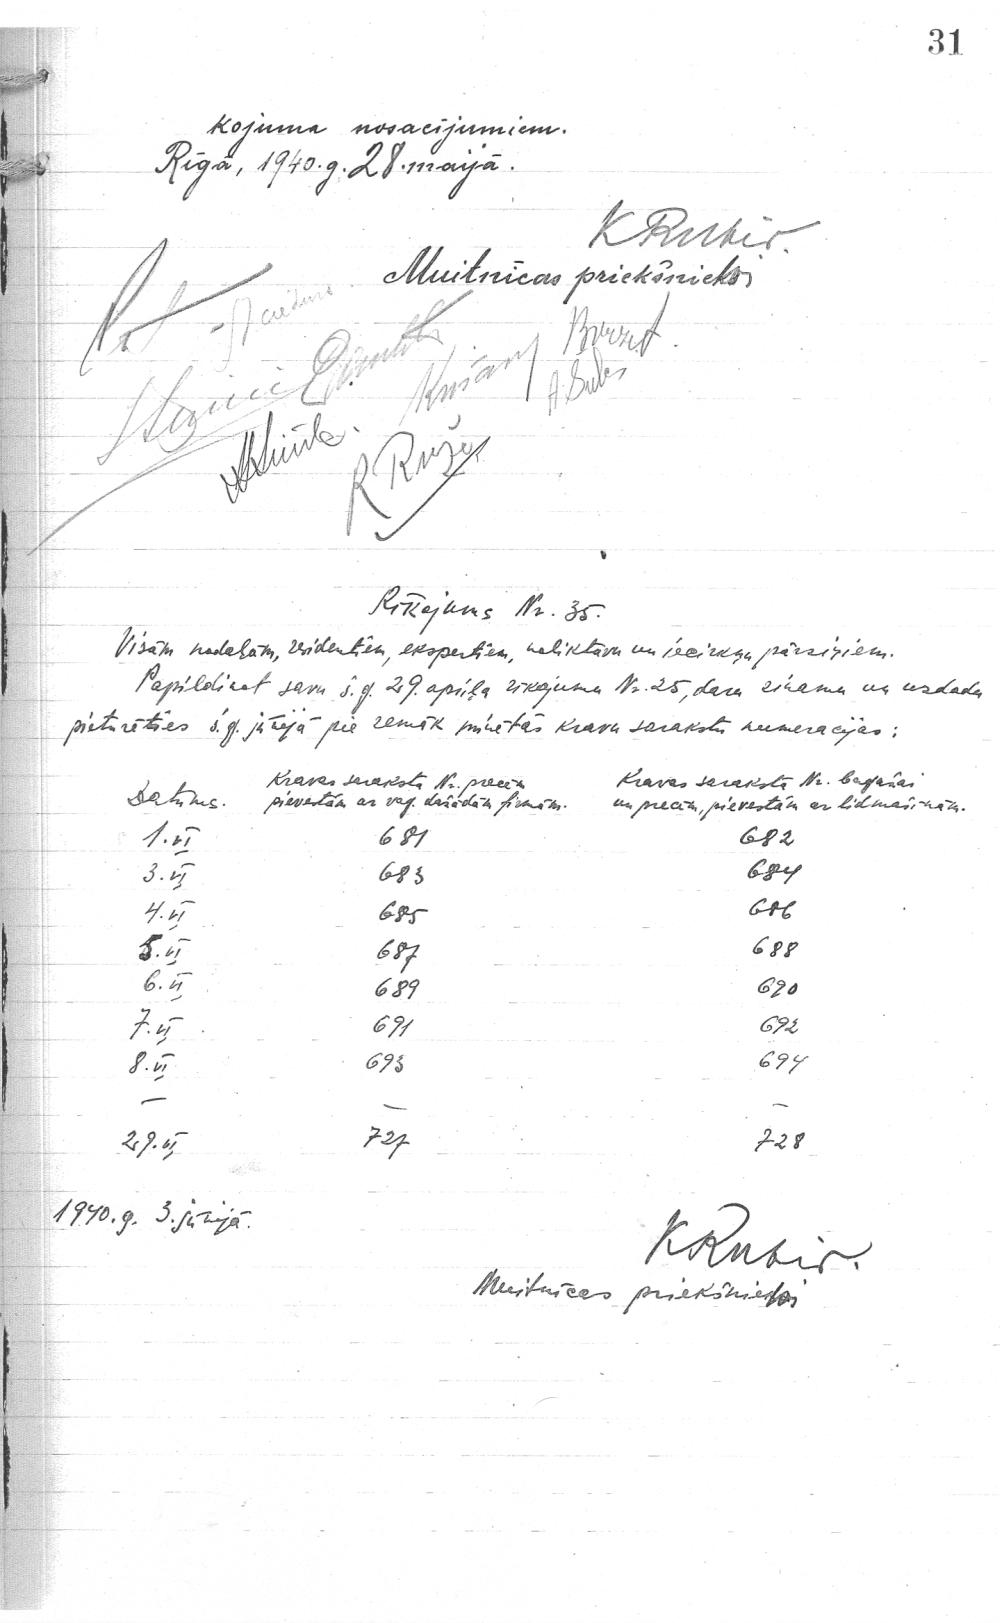 31
kojuma nosacījumiem.
Rīgā, 1940.g. 28. maijā.
K Rubis.
Muitnīcas priekšnieks
R Ruže
Rīkojums Nr. 35.
Visām nodaļām, rezidentiem, ekspertiem, noliktavu un iecirkņu pārziņiem.
Papildinot savu š.g. 29. apriļa rīkojumu Nr. 25, daru zināmu un uzdodu
pieturēties š.g. jūnijā pie zemāk minētās kravu sarakstu numerācijas:
Datums. Kravas saraksta Nr. precēm Kravas saraksta Nr. bagažai
pievestām ar vag. dažādām firmām. un precēm, pievestām ar lidmašinām.
1. VI 681 682
3. VI 683 684
4. VI 685 686
5. VI 687 688
6. VI 689 690
7. VI 691 692
8. VI 693 694
— — —
29. VI 727 728
1940.g. 3. jūnijā.
K Rubis.
Muitnīcas priekšnieks